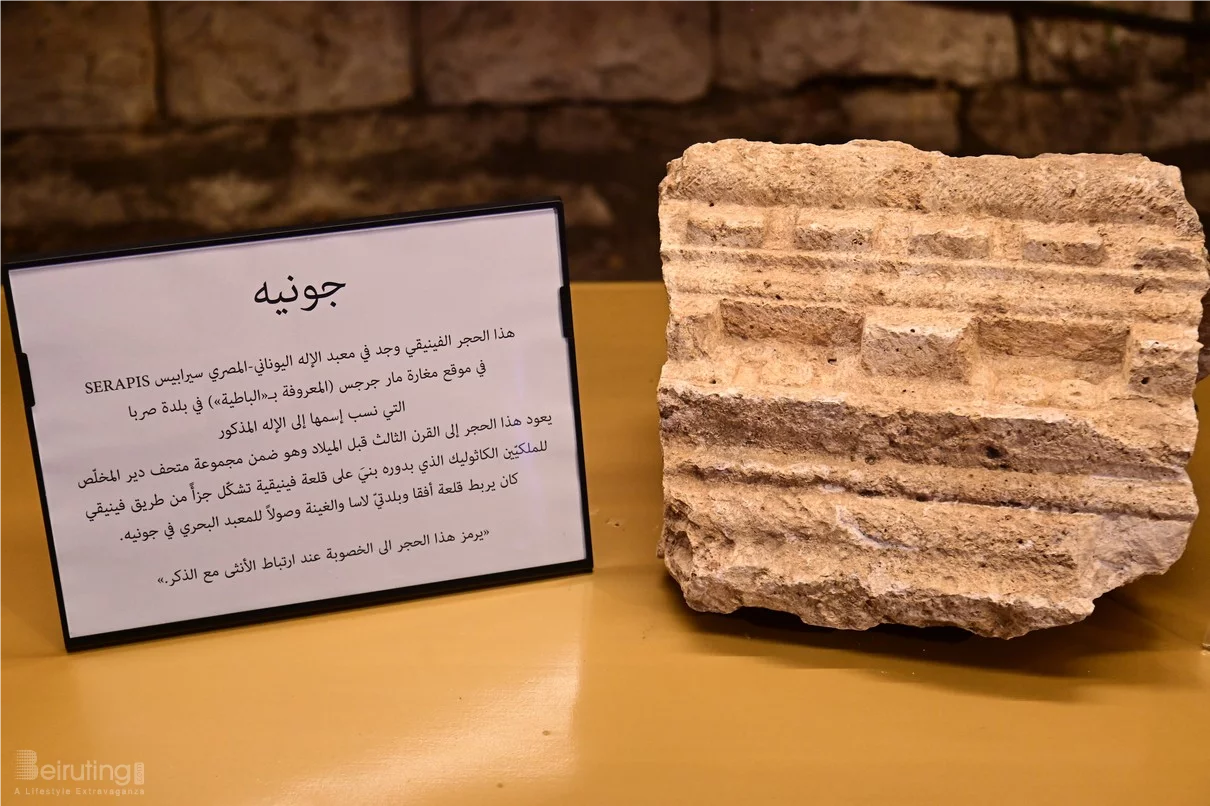 جونيه
هذا الحجر الفينيقي وجد في معبد الإله اليوناني-المصري سيرابيس SERAPIS
في موقع مغارة مار جرجس (المعروفة بـ«الباطية») في بلدة صربا
التي نسب إسمها إلى الإله المذكور
يعود هذا الحجر إلى القرن الثالث قبل الميلاد وهو ضمن مجموعة متحف دير المخلّص
للملكيّين الكاثوليك الذي بدوره بنيَ على قلعة فينيقية تشكّل جزأً من طريق فينيقي
كان يربط قلعة أفقا وبلدتيّ لاسا والغينة وصولاً للمعبد البحري في جونيه.
«يرمز هذا الحجر الى الخصوبة عند ارتباط الأنثى مع الذكر.»
Beiruting
A Lifestyle Extravaganza